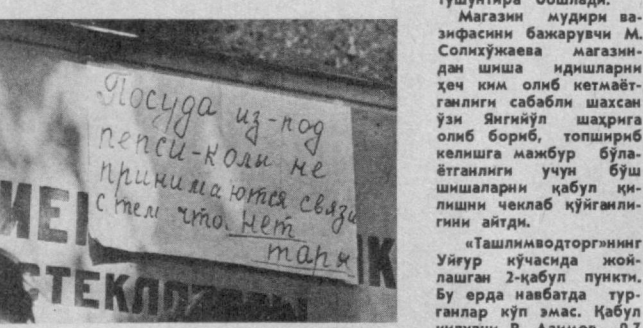 Посуда из-под
пепси-колы не
принимаются связи
с тем что. нет
тары
тушунтира бошлади.
Магазин мудири ва-
зифасини бажарувчи М.
Солихўжаева магазин-
дан шиша идишларни
ҳеч ким олиб кетмаёт-
ганлиги сабабли шахсан
ўзи Янгийўл шаҳрига
олиб бориб, топшириб
келишга мажбур бўла-
ётганлиги учун бўш
шишаларни қабул қи-
лишни чеклаб қўйганли-
гини айтди.
«Ташлимводторг»нинг
Уйғур кўчасида жой-
лашган 2-қабул пункти.
Бу ерда навбатда тур-
ганлар кўп эмас. Қабул